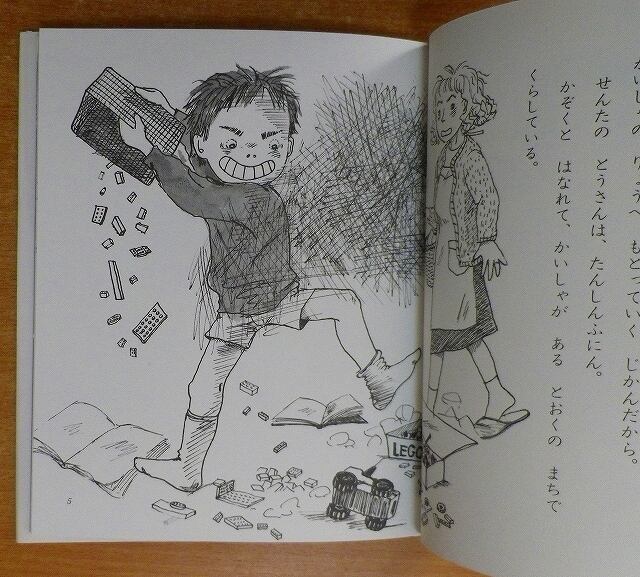 かいしゃの りょうへ もどっていく じかんだから。
せんたの とうさんは、たんしんふにん。
かぞくと はなれて、かいしゃが ある とおくの まちで
くらしている。
LEGO
5